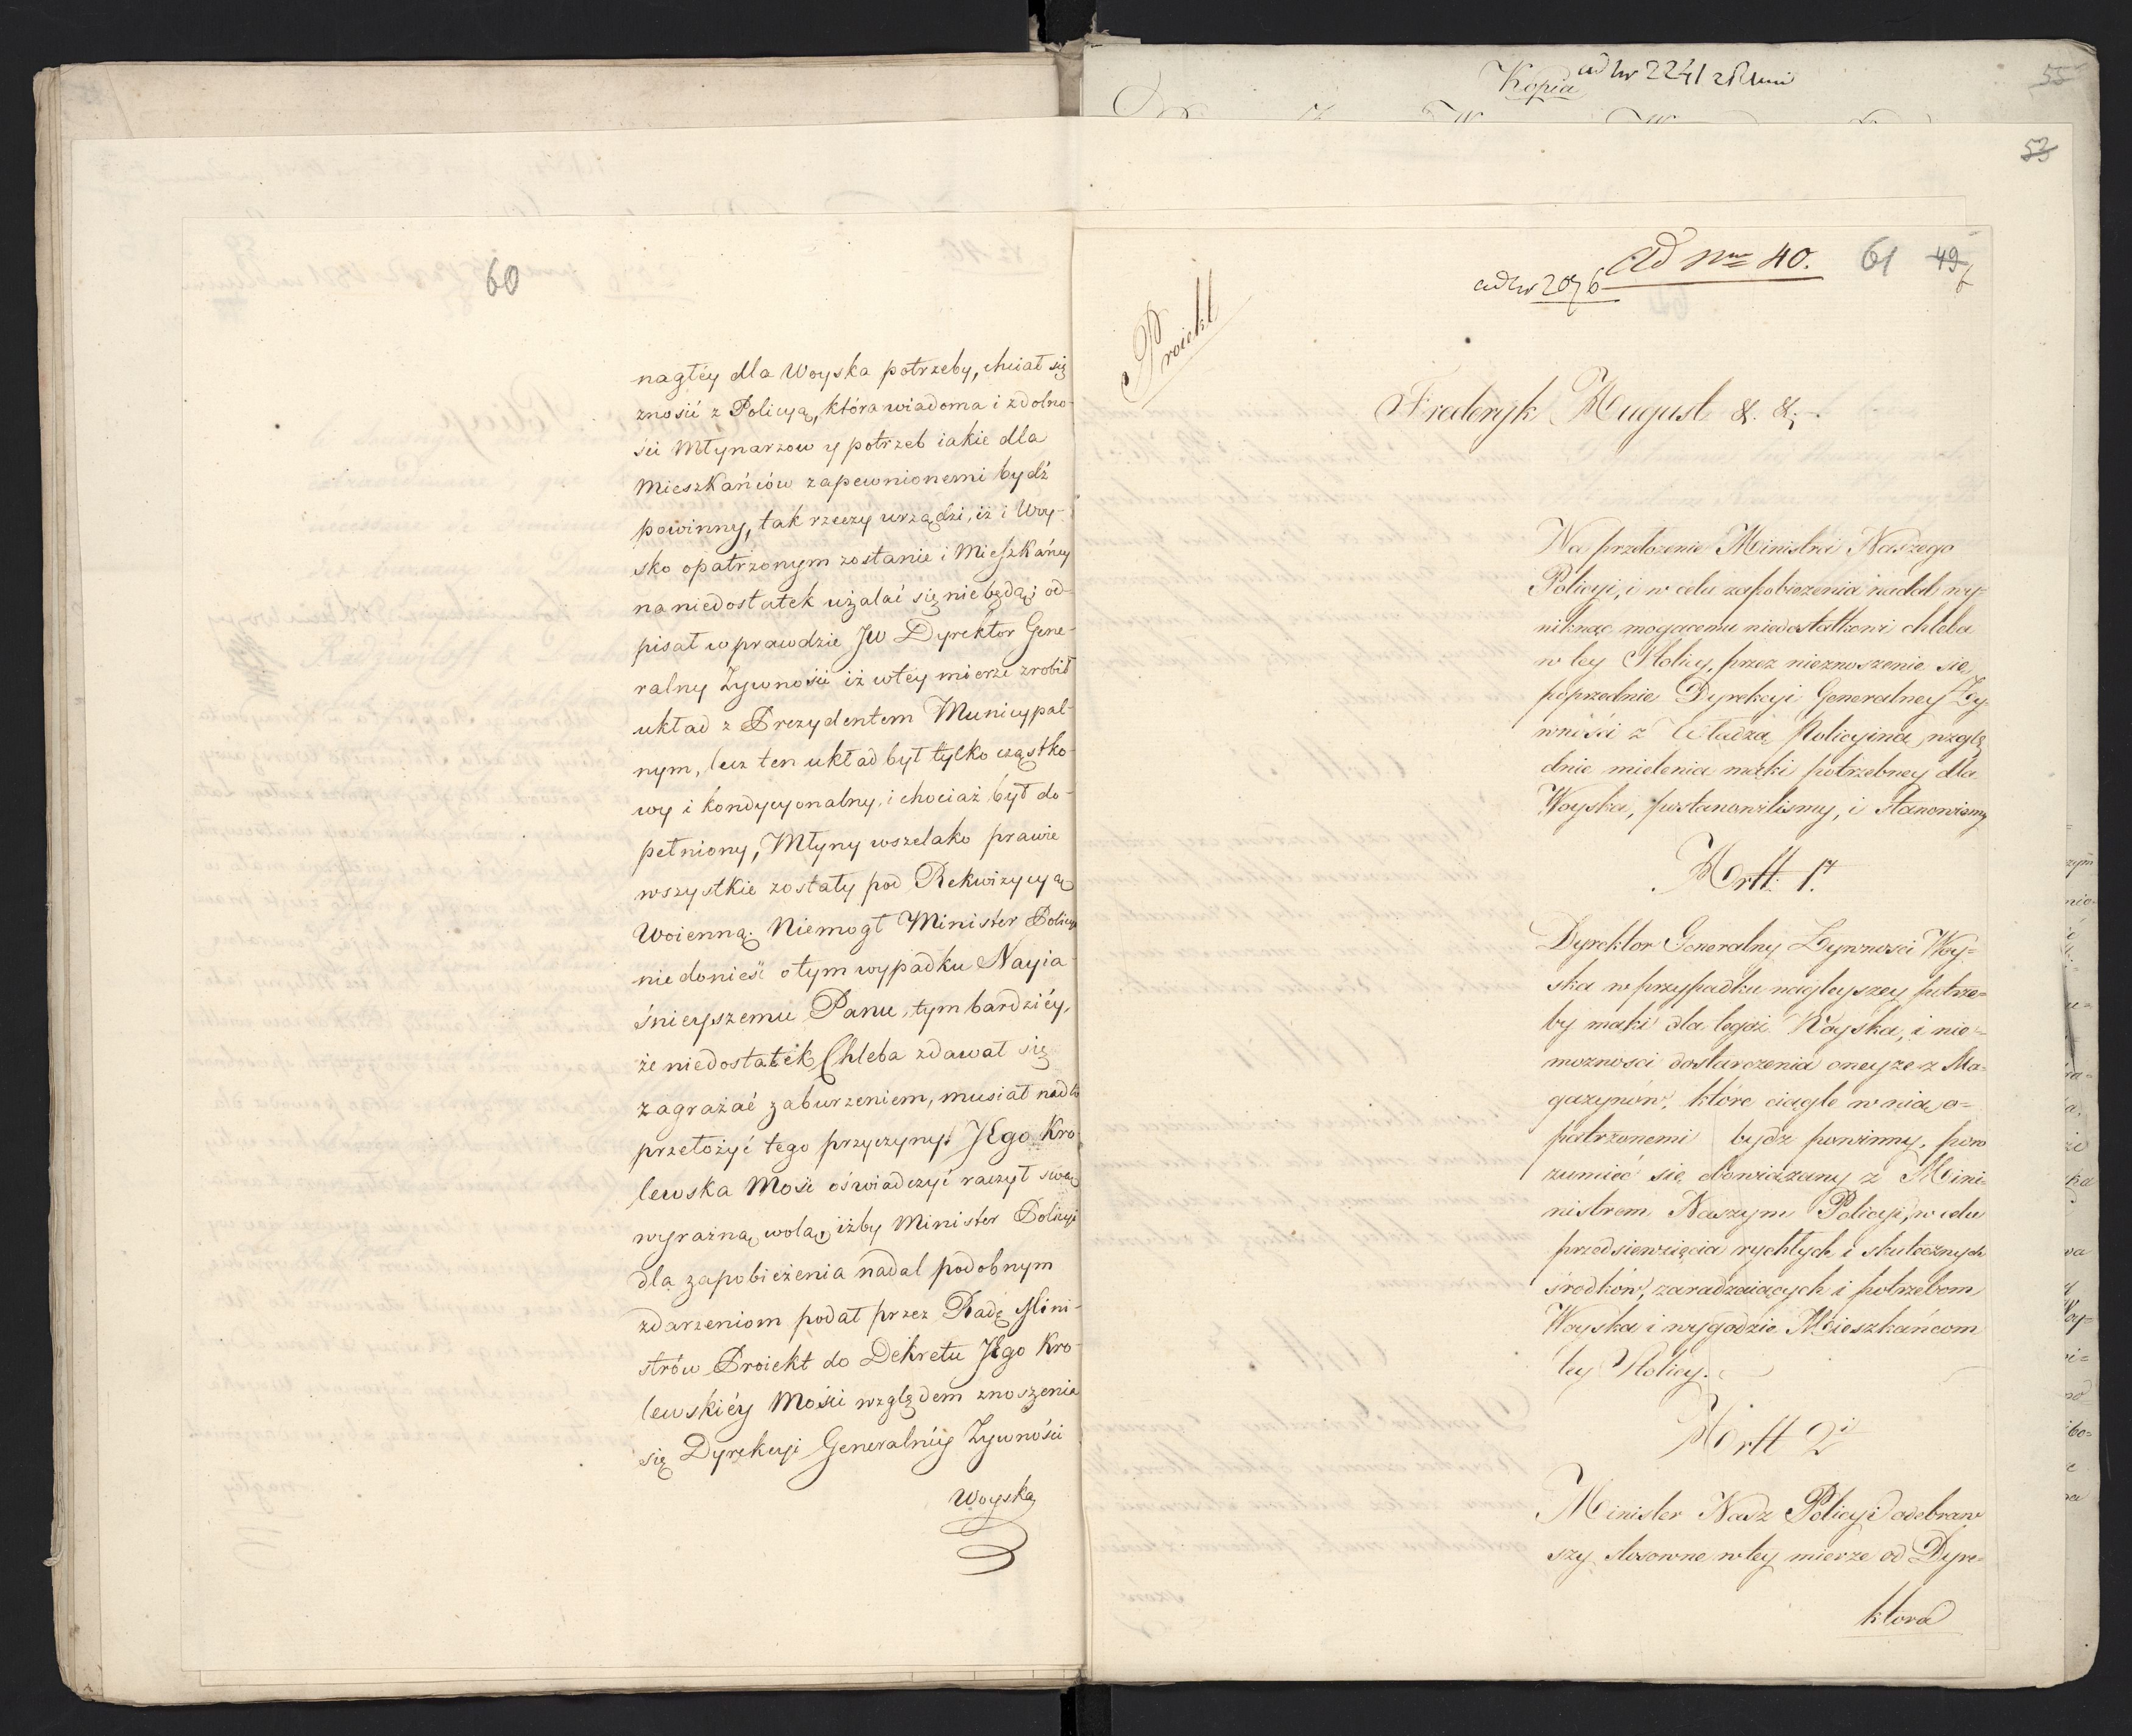 60
nagłéy dla Woyska potrzeby, chciał się
znosić z Policyą, która wiadoma i zdolno-
ści Młynarzow y potrzeb iakie dla
Mieszkańców zapewnionemi bydź
powinny, tak rzeczy urządzi, iż i Woy-
sko opatrzonym zostanie i Mieszkańcy
na niedostatek użalać się nie będą; od-
pisał wprawdzie JW Dyrektor Gene-
ralny Żywności iż w tey mierze zrobił
układ z Prezydentem Municypal-
nym, lecz ten układ był tylko cząstko-
wy i kondycyonalny, i chociaż był do-
pełniony, Młyny wszelako prawie
wszystkie zostały pod Rekwizycyą
Woienną. Niemogł Minister Policyi
nie donieść o tym wypadku Nayia-
śnieyszemu Panu, tym bardziéy,
że niedostatek Chleba zdawał się
zagrażać zaburzeniem, musiał nadto
przełożyć tego przyczyny. JEgo Kro-
lewska Mość oświadczyć raczył swą
wyraźną wolą, iżby Minister Policyi
dla zapobieżenia nadal podobnym
zdarzeniom podał przez Radę Mini-
strów Proiekt do Dekretu JEgo Kro-
lewskiéy Mości względem znoszenia
się Dyrekcyi Generalnéy Żywności
Woyska
Kopia ad Nr 2241
55
53
ad Nr 2076 Ad Nrm 40. 61 49
Proiekt
Frederyk August &. &.
Na przełożenie Ministra Naszego
Policyi, i w celu zapobieżenia nadal wy=
niknąć mogącemu niedostatkowi chleba
w tey Stolicy, przez nieznoszenie się
poprzednie Dyrekcyi Generalney Ży-
wności z Władzą Policyiną, wzglę
dnie mielenia mąki potrzebney dla
Woyska, postanowiliśmy, i stanowiemy
Artt: 1.
Dyrektor Generalny Żywności Woy=
ska w przypadku nagleyszey potrze=
by mąki dla tegoż Woyska, i nie=
możności dostarczenia oneyże z Ma=
gazynów, które ciągle w nią o=
patrzonemi bydź powinny, poro
zumieć się obowiązany z Mini=
nistrem Naszym Policyi, w celu
przedsiewzięcia rychłych i skutecznych
środków, zaradzaiących i potrzebom
Woyska i wygodzie Mieszkańcom
tey Stolicy.
Artt 2
Minister Nasz Policyi odebraw
szy stosowne w tey mierze od Dyre=
ktora